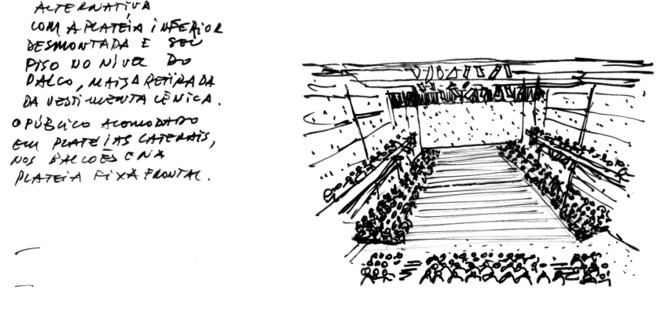 ALTERNATIVA
COM A PLATÉIA INFERIOR
DESMONTADA E SEU
PISO NO NÍVEL DO
PALCO, MAIS A RETIRADA
DA VESTIMENTA CÊNICA.
O PÚBLICO ACOMODADO
EM PLATÉIAS LATERAIS,
NOS BALCÕES E NA
PLATEIA FIXA FRONTAL.